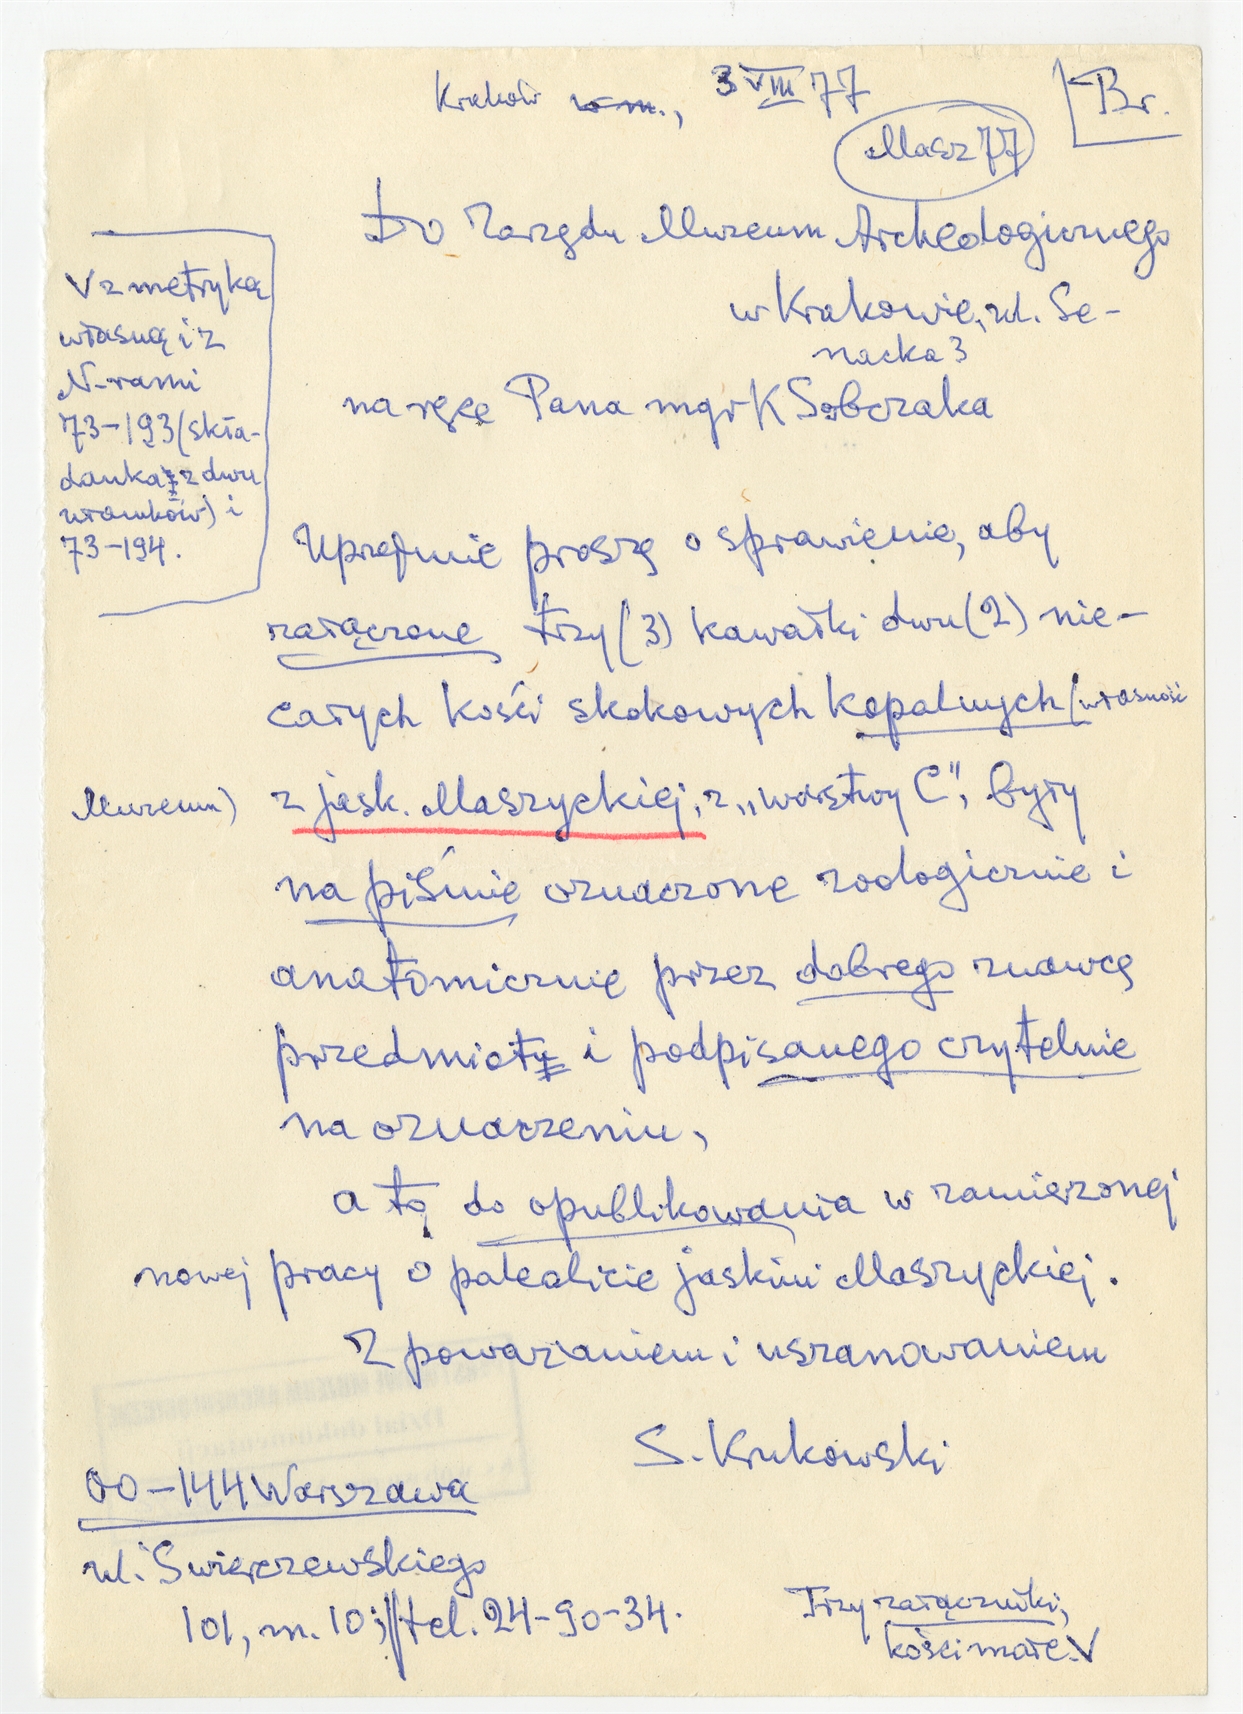 Kraków w m., 3 VIII 77
Br.
Masz 77
Do Zarządu Muzeum Archeologicznego
w Krakowie, ul. Se-
nacka 3
na ręce Pana mgr K Sobczaka
V z metryką
własną i z
N-rami
73-193 (skła-
danka z dwu
ułamków) i
73-194.
Uprzejmie proszę o sprawienie, aby
załączone trzy (3) kawałki dwu (2) nie-
całych kości skokowych kopalnych (własność
Muzeum) z jask. Maszyckiej, z „warstwy C”, były
na piśmie oznaczone zoologicznie i
anatomicznie przez dobrego znawcę
przedmiotu i podpisanego czytelnie
na oznaczeniu,
a to do opublikowania w zamierzonej
nowej pracy o palealicie jaskini Maszyckiej.
Z poważaniem i uszanowaniem
S. Krukowski
00-144 Warszawa
ul. Świerczewskiego
101, m. 10; tel. 24-90-34.
Trzy załączniki,
kości małe. V